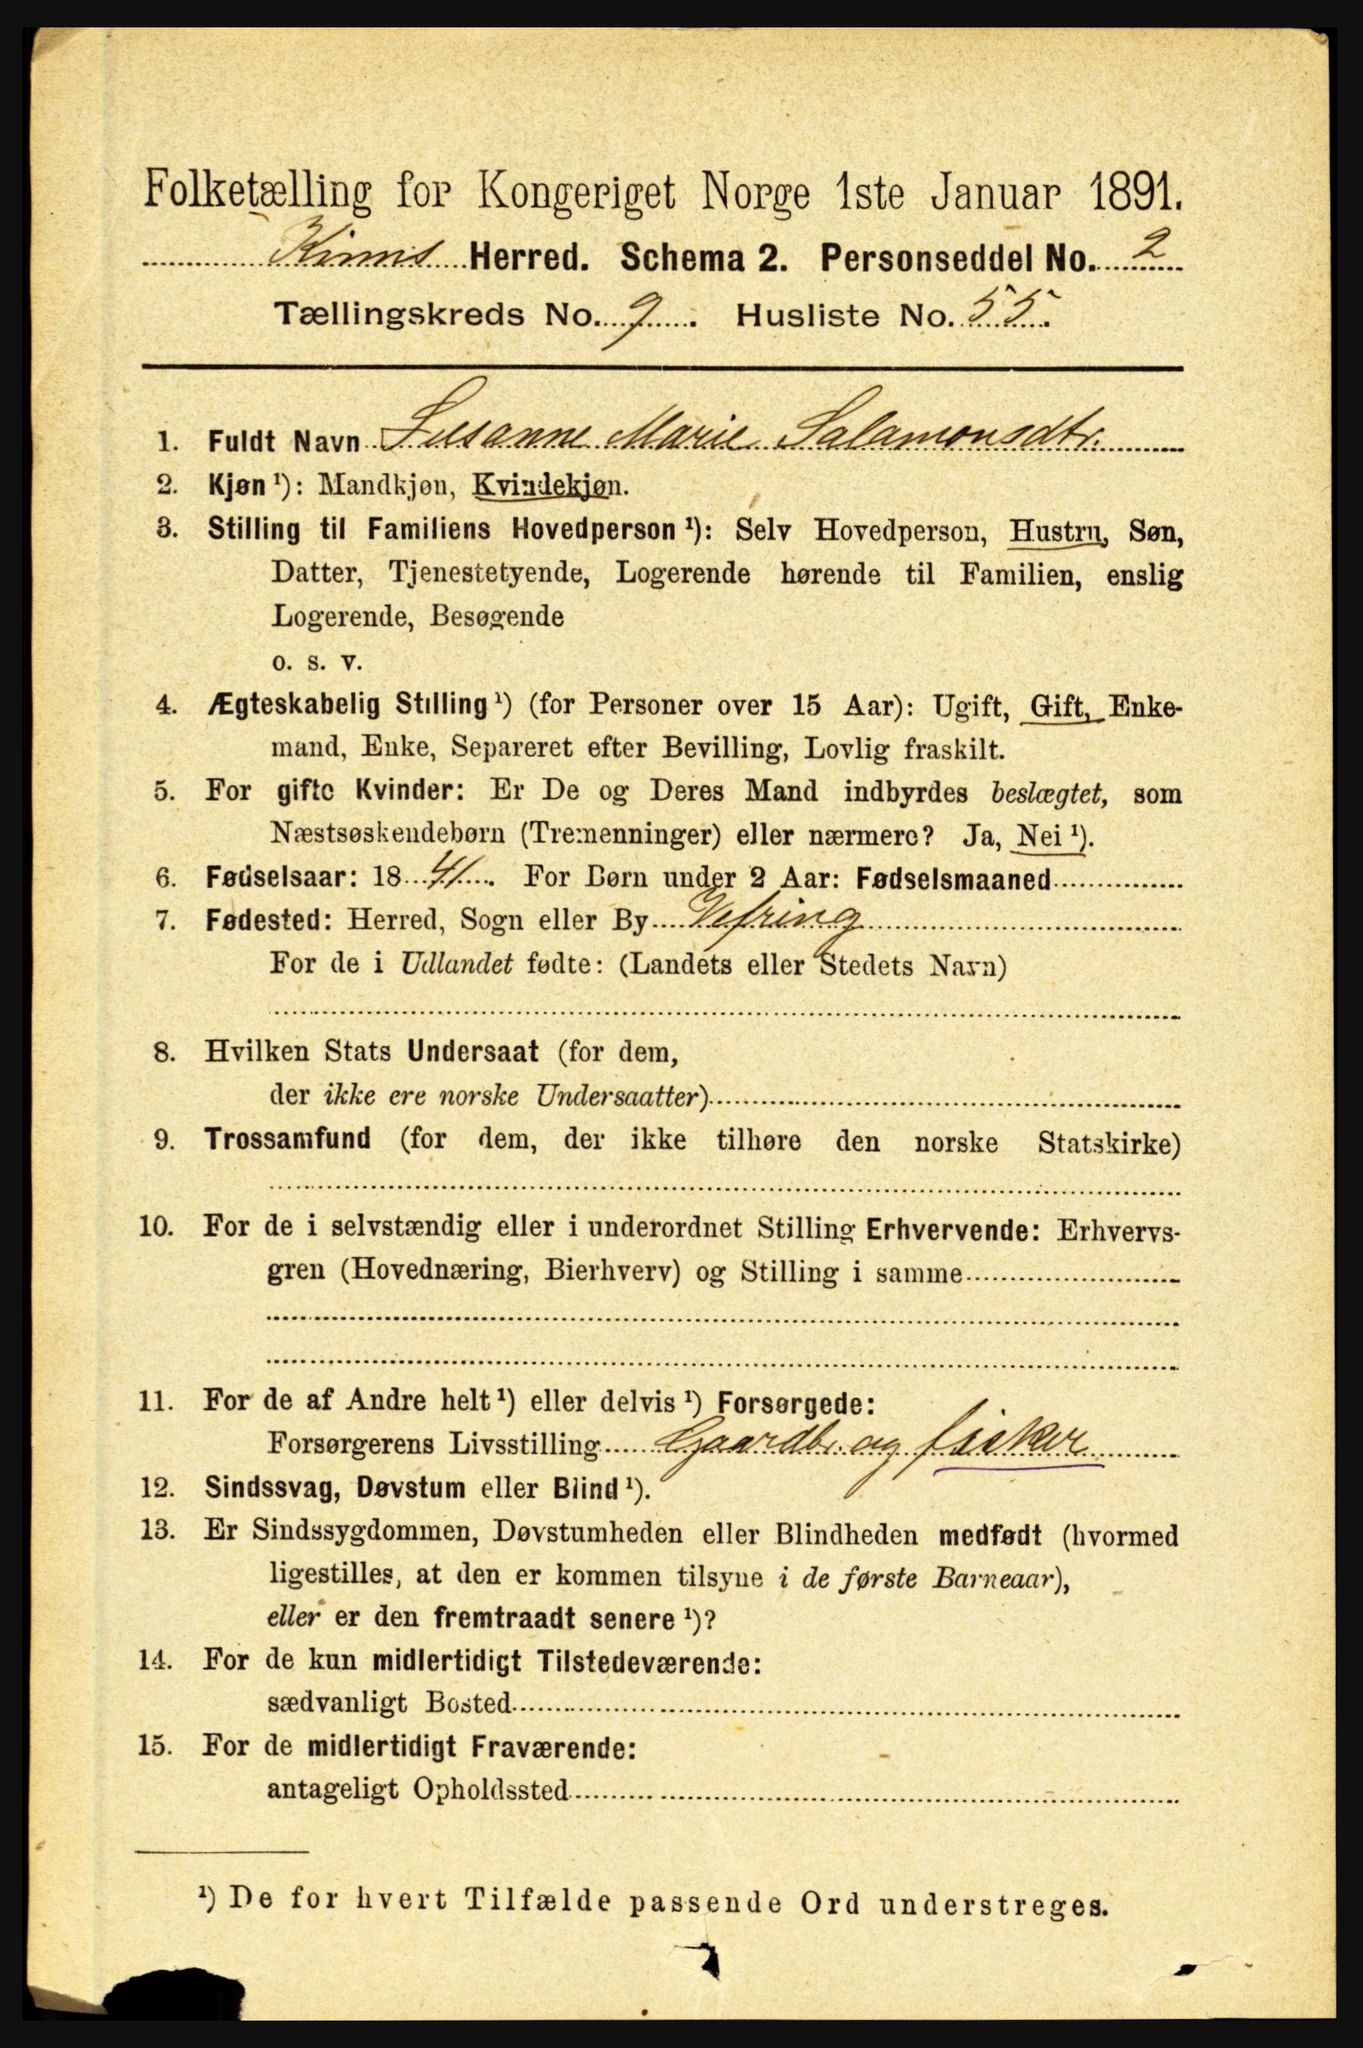 Folketælling for Kongeriget Norge 1ste Januar 1891.
Kinns Herred. Schema 2. Personseddel No. 2
Tællingskreds No. 9. Husliste No. 55.
1. Fuldt Navn Susanne Marie Salamonsdtr.
2. Kjøn ¹): Mandkjøn, Kvindekjøn.
3. Stilling til Familiens Hovedperson ¹): Selv Hovedperson, Hustru, Søn,
Datter, Tjenestetyende, Logerende hørende til Familien, enslig
Logerende, Besøgende
o. s. v.
4. Ægteskabelig Stilling ¹) (for Personer over 15 Aar): Ugift, Gift, Enke-
mand, Enke, Separeret efter Bevilling, Lovlig fraskilt.
5. For gifte Kvinder: Er De og Deres Mand indbyrdes beslægtet, som
Næstsøskendebørn (Tremenninger) eller nærmere? Ja, Nei ¹).
6. Fødselsaar: 1841. For Børn under 2 Aar: Fødselsmaaned
7. Fødested: Herred, Sogn eller By Vefring
For de i Udlandet fødte: (Landets eller Stedets Navn)
8. Hvilken Stats Undersaat (for dem,
der ikke ere norske Undersaatter)
9. Trossamfund (for dem, der ikke tilhøre den norske Statskirke)
10. For de i selvstændig eller i underordnet Stilling Erhvervende: Erhvervs-
gren (Hovednæring, Bierhverv) og Stilling i samme
11. For de af Andre helt ¹) eller delvis ¹) Forsørgede:
Forsørgerens Livsstilling Gaardbr. og fisker
12. Sindssvag, Døvstum eller Blind ¹).
13. Er Sindssygdommen, Døvstumheden eller Blindheden medfødt (hvormed
ligestilles, at den er kommen tilsyne i de første Barneaar),
eller er den fremtraadt senere ¹)?
14. For de kun midlertidigt Tilstedeværende:
sædvanligt Bosted
15. For de midlertidigt Fraværende:
antageligt Opholdssted
¹) De for hvert Tilfælde passende Ord understreges.